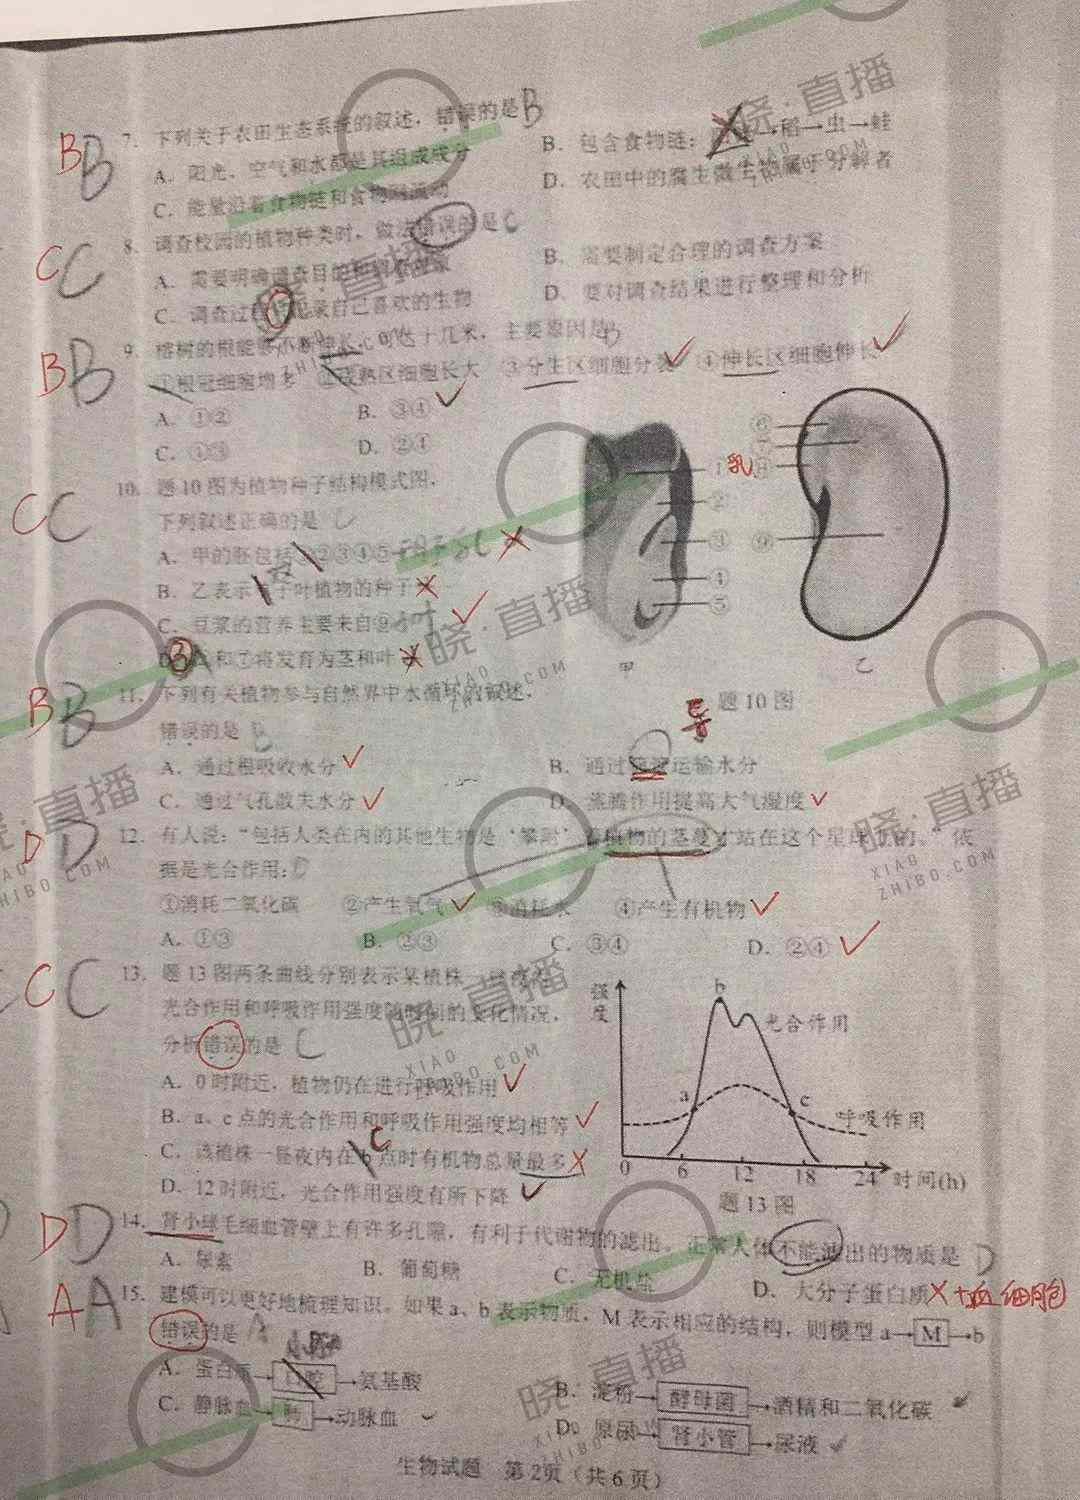 B B 7. 下列关于农田生态系统的叙述，错误的是 B
A. 阳光、空气和水都是其组成成分
B. 包含食物链： →稻→虫→蛙
C. 能量沿着食物链和食物网流动
D. 农田中的腐生微生物属于分解者
C C 8. 调查校园的植物种类时，做法错误的是 C
A. 需要明确调查目的
B. 需要制定合理的调查方案
C. 调查过程 记录自己喜欢的生物
D. 要对调查结果进行整理和分析
B B 9. 榕树的根能够不断伸长，可达十几米，主要原因是 B
①根冠细胞增多 ②成熟区细胞长大 ③分生区细胞分裂 ④伸长区细胞伸长
A. ①② B. ③④
C. ①③ D. ②④
C C 10. 题10图为植物种子结构模式图，
下列叙述正确的是 C
A. 甲的胚包括 ②③④⑤
B. 乙表示 子叶植物的种子
C. 豆浆的营养主要来自⑨
D. 和⑦将发育为茎和叶
1 乳
2
③
④
⑤
⑥
⑦
⑧
⑨
甲 乙
题10图
B B 11. 下列有关植物参与自然界中水循环的叙述，
错误的是 B
A. 通过根吸收水分
B. 通过 运输水分 导
C. 通过气孔散失水分
D. 蒸腾作用提高大气湿度
D D 12. 有人说：“包括人类在内的其他生物是‘攀附’着植物的茎蔓才站在这个星球上的。”依
据是光合作用： D
①消耗二氧化碳 ②产生氧气 ③消耗水 ④产生有机物
A. ①③ B. ②③ C. ③④ D. ②④
C C 13. 题13图两条曲线分别表示某植株一
光合作用和呼吸作用强度随时间的变化情况，
分析错误的是 C
A. 0时附近，植物仍在进行呼吸作用
B. a、c点的光合作用和呼吸作用强度均相等
C. 该植株一昼夜内在b点时有机物总量最多 c
D. 12时附近，光合作用强度有所下降
强度
b
光合作用
a c
呼吸作用
0 6 12 18 24 时间(h)
题13图
D D 14. 肾小球毛细血管壁上有许多孔隙，有利于代谢物的滤出。正常人体不能滤出的物质是 D
A. 尿素 B. 葡萄糖 C. 无机盐 D. 大分子蛋白质 +血细胞
A A 15. 建模可以更好地梳理知识。如果a、b表示物质，M表示相应的结构，则模型a→M→b
错误的是 A
A. 蛋白质→口腔→氨基酸
B. 淀粉→酵母菌→酒精和二氧化碳
C. 静脉血→肺→动脉血
D. 原尿→肾小管→尿液
生物试题 第2页（共6页）
晓·直播
XIAO
ZHIBO.COM